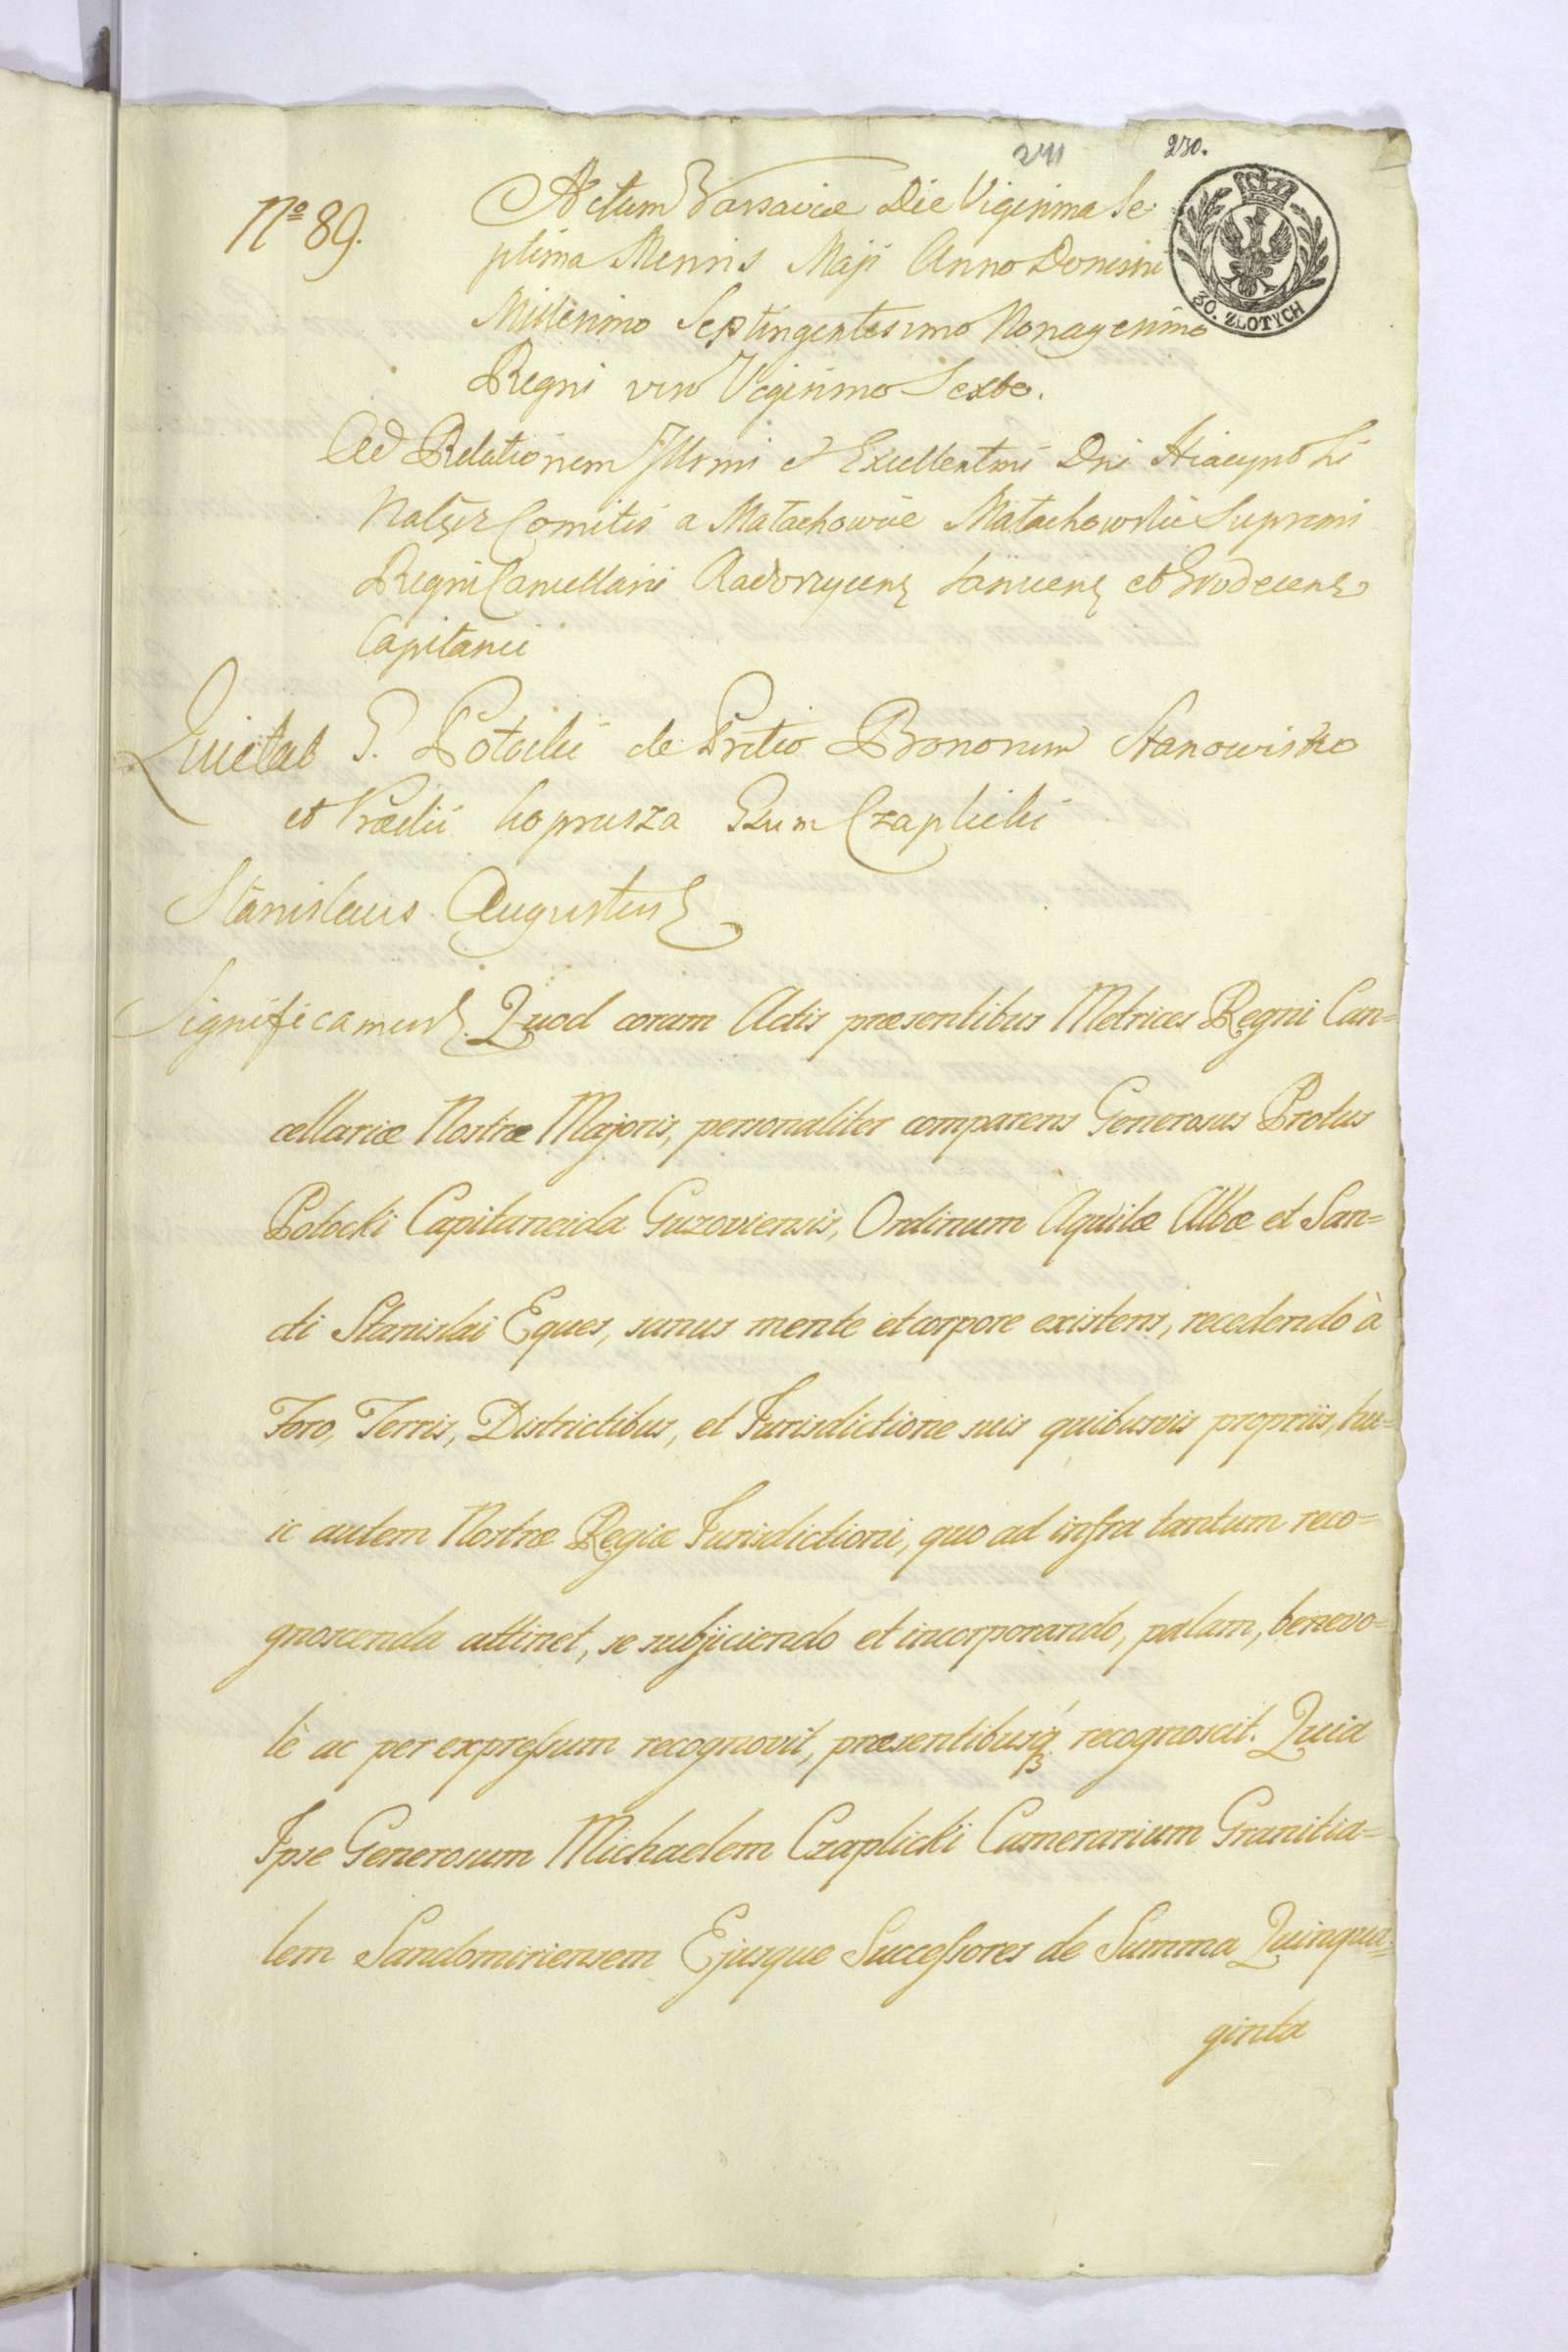 241
230.
30. ZŁOTYCH
Nº 89.
Actum Varsaviæ Die Vigesima Se
ptima Mensis Maji Anno Domini
Millesimo Septingentesimo Nonagesimo
Regni vero Vigesimo Sexto.
Ad Relationem Illmi et Excellentmi Dni Hiacynthi
Comitis a Małachowice Małachowski Supremi
Regni Cancellarii et Grodecens
Capitanei
Quietat G. Potocki de Pretio Bonorum Stanowisko
et Prædii Koprusza Gum Czaplicki
Stanislaus Augustus
Significamus. Quod coram Actis præsentibus Metrices Regni Can=
cellariæ Nostræ Majoris, personaliter comparens Generosus Protus
Potocki Capitaneida Guzoviensis, Ordinum Aquilæ Albæ et San=
cti Stanislai Eques, sanus mente et corpore existens, recedendo à
Foro, Terris, Districtibus, et Jurisdictione suis quibusvis propriis, hu=
ic autem Nostræ Regiæ Jurisdictioni, quo ad infra tantum reco=
gnoscenda attinet, se subjiciendo et incorporando, palam, benevo=
lè ac per expressum recognovit, præsentibusq recognoscit. Quia
Ipse Generosum Michaelem Czaplicki Camerarium Granitia=
lem Sandomiriensem Ejusque Successores de Summa Quinqua=
ginta